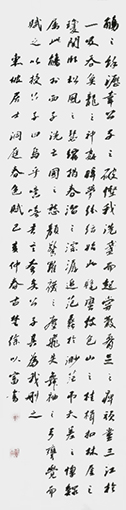 觴之餘瀝幸公子之破慳我洗盞而起嘗散腰足之痺頑盡三江於
一吸吞魚龍之神姦醉夢紛紜始如髦蠻鼓包山之桂楫扣林屋之
瓊關臥松風之瑟縮揭春溜之淙潺追范蠡於渺茫弔夫差之惸鰥
屬此觴於西子洗亡國之愁顏驚羅襪之塵飛失舞袖之弓彎覺而
賦之以授公子曰烏乎噫嘻吾言夸矣公子其為我刪之
東坡居士洞庭春色賦己仲春古徐以富書